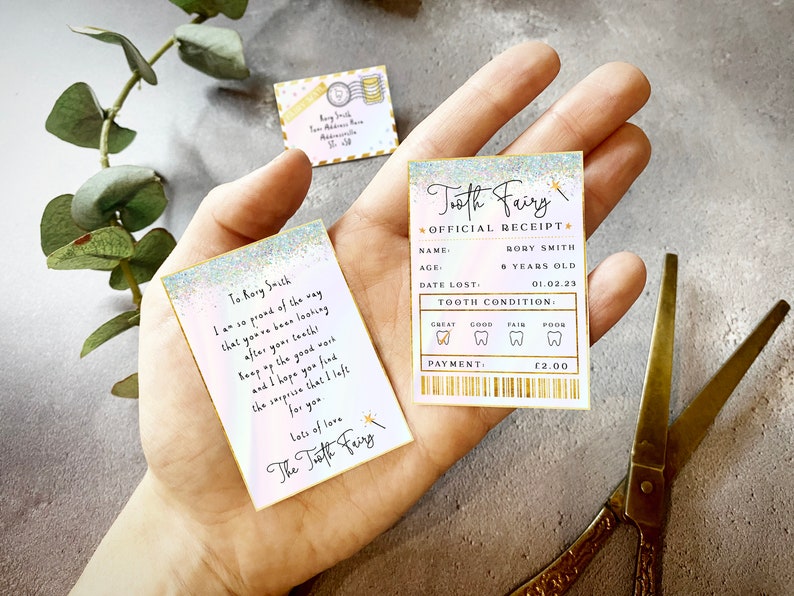 Rory Smith
Your Address Here
Addressville
To Rory Smith
I am so proud of the way
that you've been looking
after your teeth!
Keep up the good work
and I hope you find
the surprise that I left
for you.
Lots of love
The Tooth Fairy
Tooth Fairy
OFFICIAL RECEIPT
NAME: RORY SMITH
AGE: 6 YEARS OLD
DATE LOST: 01.02.23
TOOTH CONDITION:
GREAT GOOD FAIR POOR
PAYMENT: £2.00